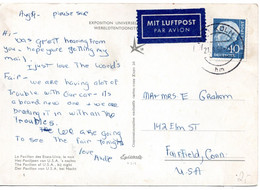 EXPOSITION UNIVERSE
WERELDTENTOONST
MIT LUFTPOST
PAR AVION
KÖLN
40
Hi -
was great hearing from
you - hope you're getting my
mail.
I just love the Worlds
Fair - we are having a lot of
trouble with our car - its a
brand new one + we are
breating it in with all the
troubles.
We are going
to see the fair tonight
Love
Mr + Mrs E Graham
142 Elm St
Fairfield, Conn
U.S.A
Le Pavillon des Etats-Unis, le soir
Het Paviljoen van U.S.A. 's nachts
The Pavilion of U.S.A. by night
Der Pavillon der U.S.A. bei Nacht